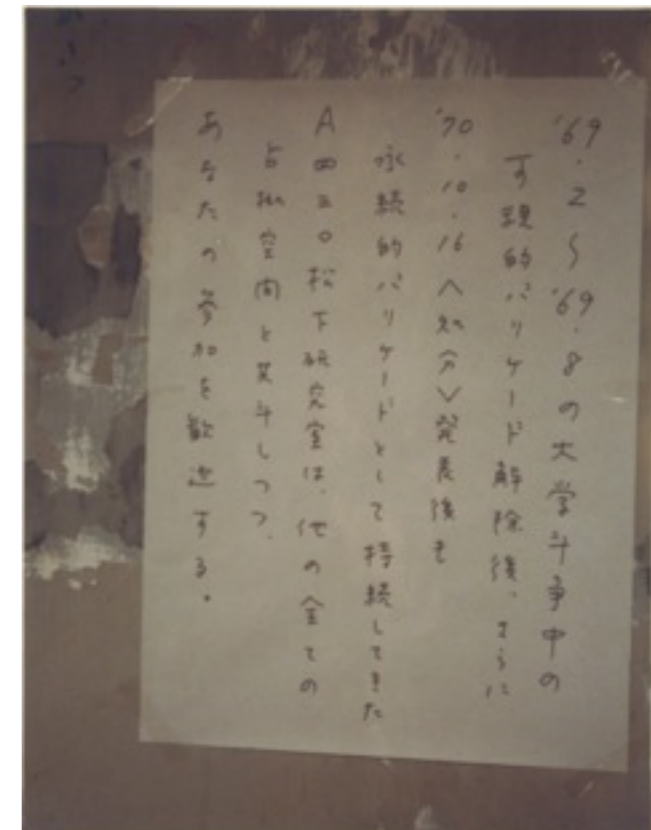 '69・2〜'69・8の大学斗争中の
可視的バリケード解除後、さらに
'70・10・16〈処分〉発表後も
永続的バリケードとして持続してきた
A四三〇松下研究室は、他の全ての
占拠空間と共斗しつつ、
あなたの参加を歓迎する。